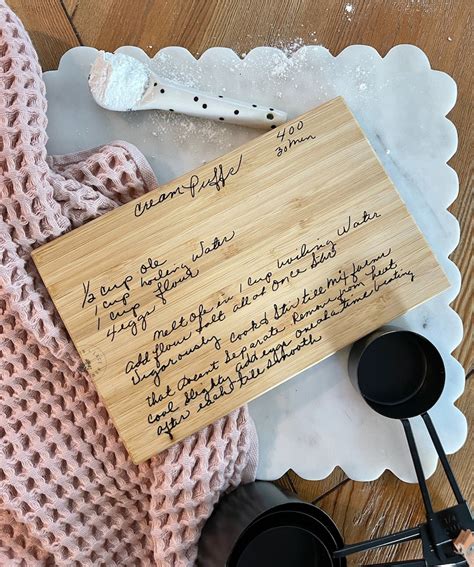 Cream Puffs
400
30 min
1/2 cup Ole
1 cup boiling Water
1 cup flour
4 eggs
Melt Ole in 1 cup boiling Water
Add flour salt all at once Stir
Vigorously Cook & Stir till mix forms
that doesnt Separate Remove from heat
cool slightly add eggs one at a time beating
after each till smooth